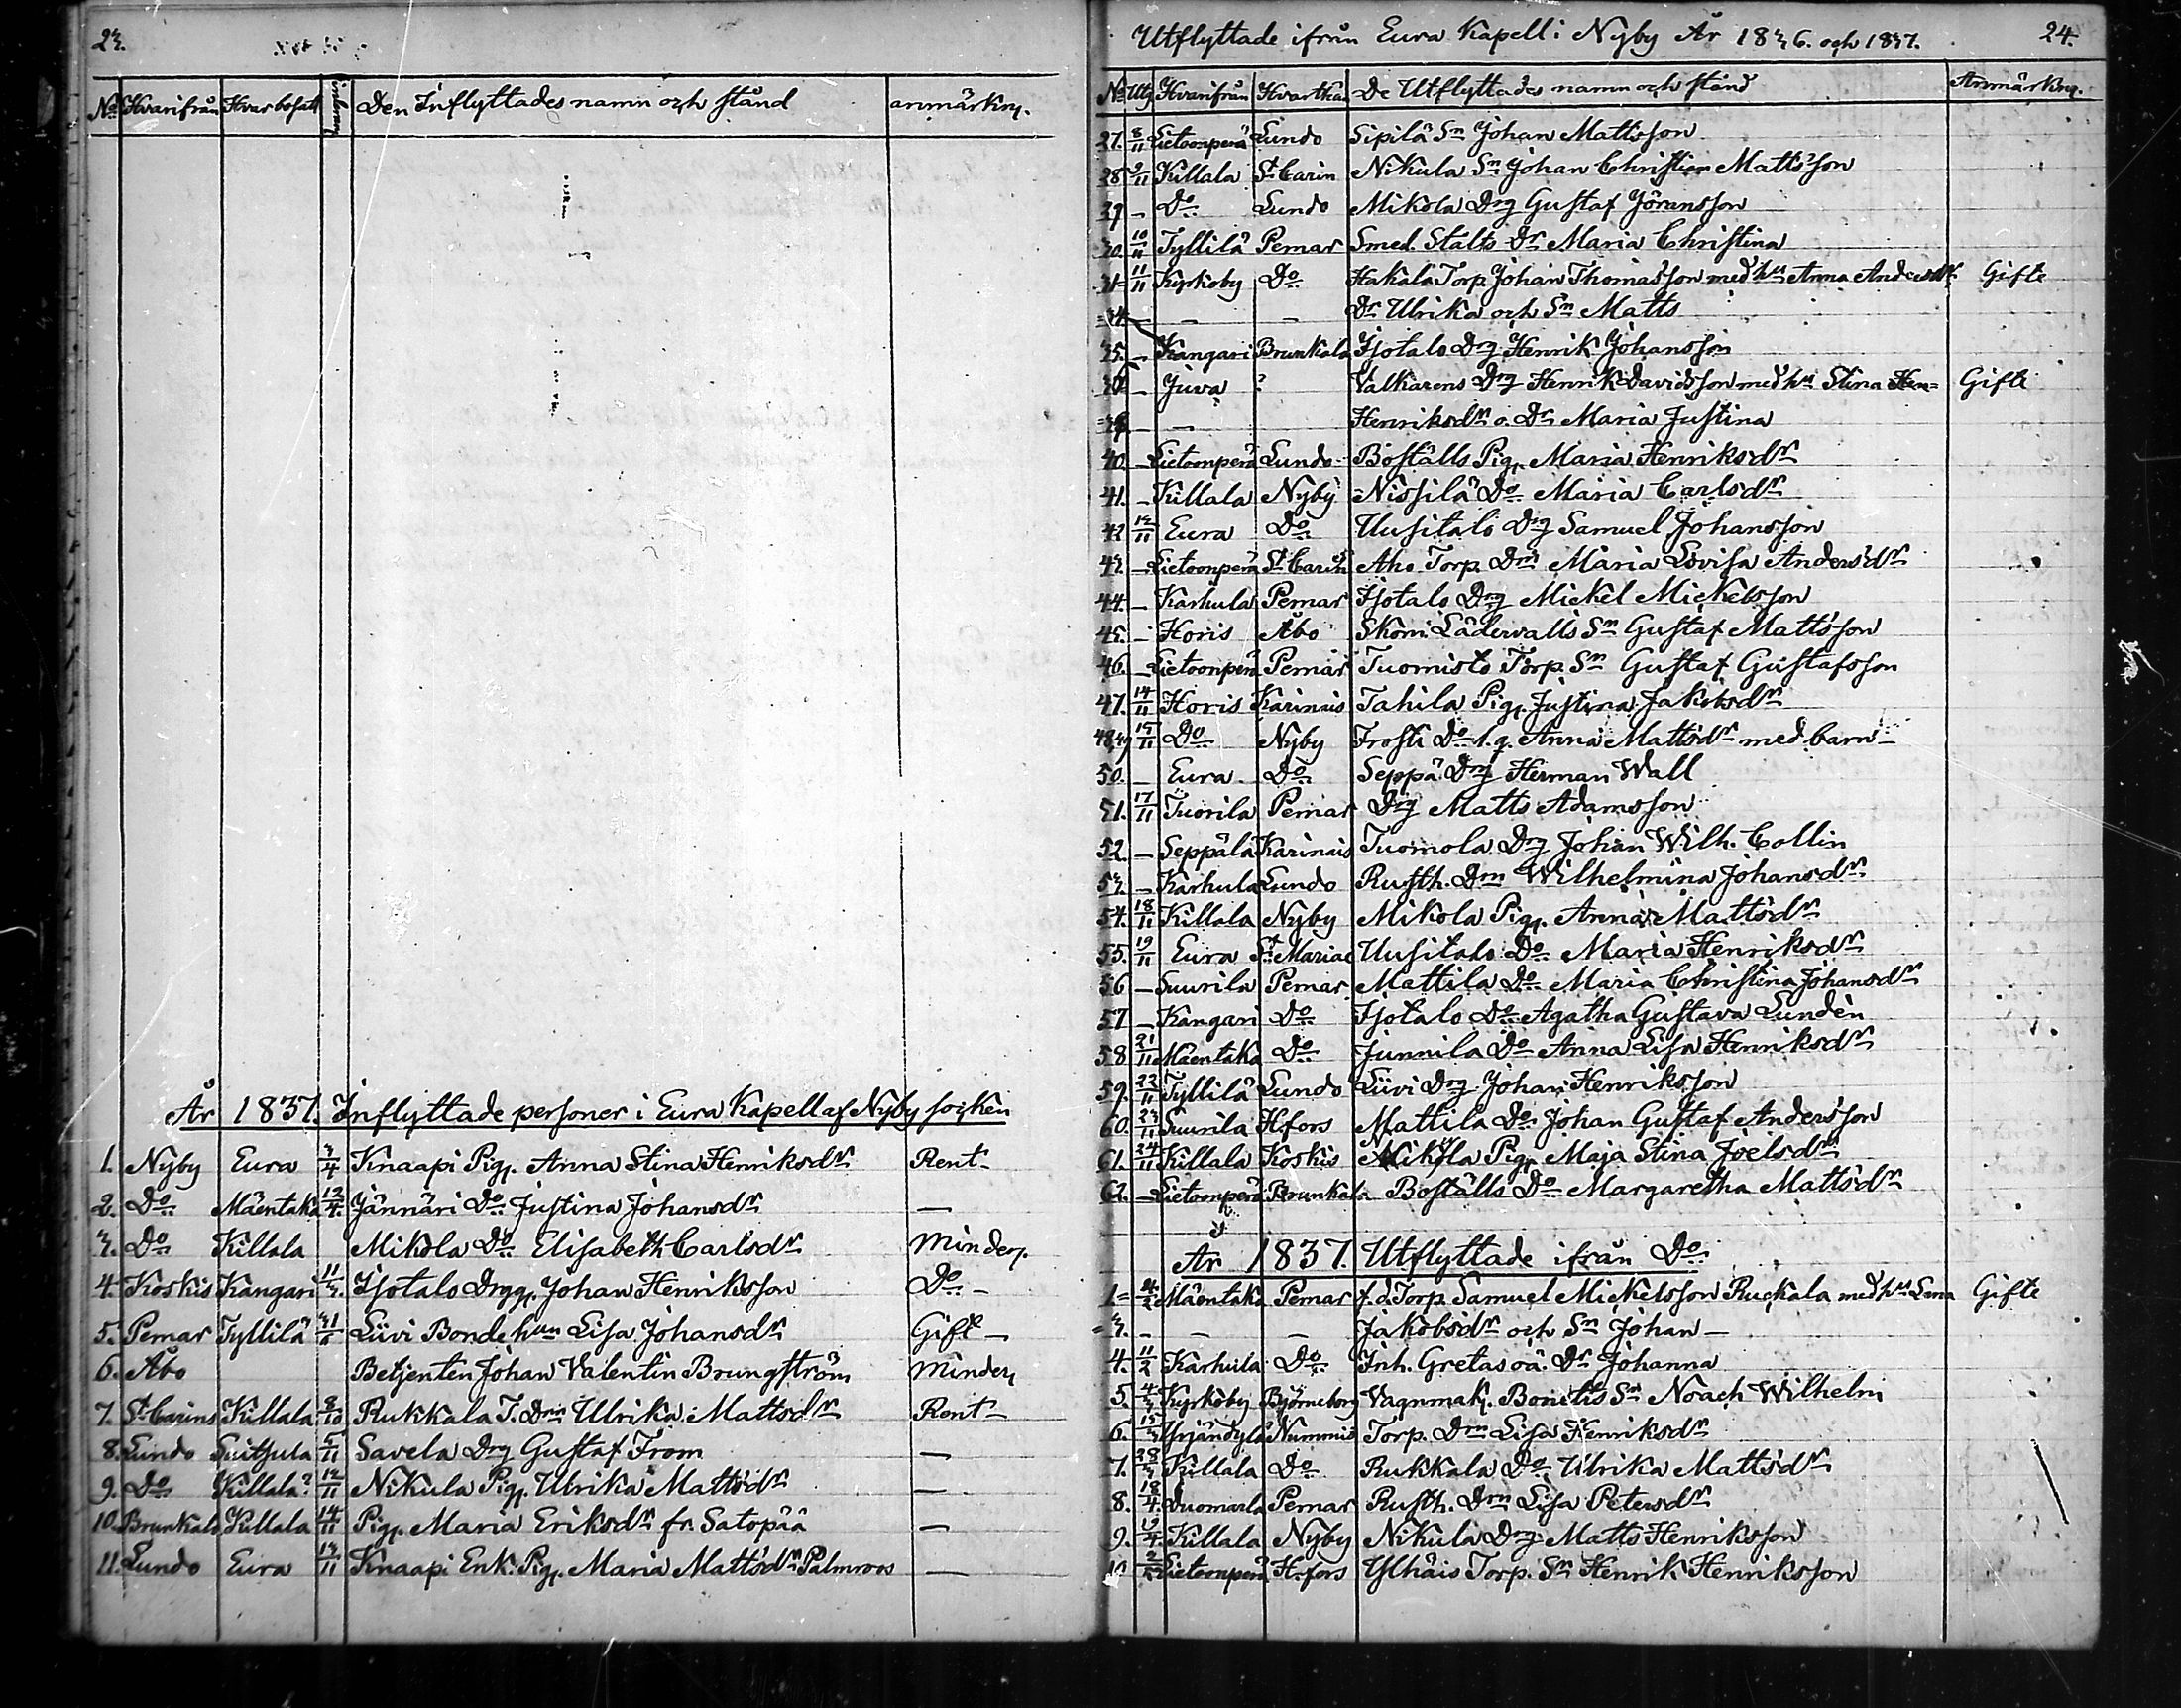 23.
No Hvarifrån Hvar bosatt Den Inflyttades namn och stånd anmärkn.
År 1837. Inflyttade personer i Eura Kapell af Nyby socken
1. Nyby Eura 3/4 Knaapi Pig. Anna Stina Henriksdr Rent
2. Do Mäentaka 12/4 Jännäri Do Justina Johansdr —
3. Do Killala Mikola Do Elisabeth Carlsdr Minderj.
4. Koskis Kangari Isotalo Drgg. Johan Henriksson Do —
5. Pemar Tyllilä Liivi Bonde hun Lisa Johansdr Gift —
6. Åbo Betjenten Johan Valentin Brungström Minderj
7. St Carins Killala 8/10 Rukkala T. Drn Ulrika Mattsdr Rent —
8. Lundo Suitsula 5/11 Savela Drg Gustaf From —
9. Do Killala? 12/11 Nikula Pig. Ulrika Mattsdr —
10. Brunkala Killala 14/11 Pig. Maria Eriksdr fr. Satopää —
11. Lundo Eura 13/11 Knaapi Enk. Pig. Maria Mattsdr Palmroos —
Utflyttade ifrån Eura Kapell i Nyby År 1836. och 1837. 24.
No Utg Hvarifrån Hvarthän De Utflyttades namn och stånd Anmärkn.
27. 8/11 Lietoonperä Lundo Sipilä Sn Johan Mattsson
28 9/11 Killala St Carin Nikula Sn Johan Christian Mattsson
29 – Do Lundo Mikola Drg Gustaf Göransson
30. 10/11 Tyllilä Pemar Smed. Stalts Dr Maria Christina
31= 11/11 Kyrkoby Do Hakala Torp Johan Thomasson med hu Anna Andersdr Gifte
=34 – – – Dr Ulrika och Sn Matts
35. – Kangari Brunkala Isotalo Drg Henrik Johansson
– Juva ? Valkarens Drg Henrik Davidsson med hu Stina Hen= Gifte
– – Henriksdr o. Dr Maria Justina
40 – Lietoonperä Lundo Boställs Pig. Maria Henriksdr
41. – Killala Nyby Nissilä Do Maria Carlsdr
42 13/11 Eura Do Uusitalo Drg Samuel Johansson
43. – Lietoonperä St Carin Aho Torp Drn Maria Lovisa Andersdr
44. – Karhula Pemar Isotalo Drg Mickel Mickelsson
45. – Horis Åbo Skom. Lädervalls Sn Gustaf Mattsson
46. – Lietoonperä Pemar Tuomisto Torp. Sn Gustaf Gustafsson
47. 14/11 Horis Karinais Tahila Pig. Justina Jakobsdr
48,49 15/11 Do Nyby Frosti Do l. q. Anna Mattsdr med barn –
50. – Eura Do Seppä Drg Herman Wall
51. 17/11 Tuorila Pemar Drg Matts Adamsson
52. – Seppälä Karinais Tuomola Drg Johan Wilh. Collin
53. – Karhula Lundo Rusth. Drn Wilhelmina Johansdr
54. 18/11 Killala Nyby Mikola Pig. Anna Mattsdr
55. 19/11 Eura St Mariae Uusitalo Do Maria Henriksdr
56 – Suurila Pemar Mattila Do Maria Christina Johansdr
57 – Kangari Do Isotalo Do Agatha Gustava Lundén
58. 21/11 Mäentaka Do Junnila Do Anna Lisa Henriksdr
59. 22/11 Tyllilä Lundo Liivi Drg Johan Henriksson
60. 23/11 Suurila H.fors Mattila Do Johan Gustaf Andersson
61. 24/11 Killala Koskis Mikola Pig. Maja Stina Joelsdr
62. – Lietoonperä Brunkala Boställs Do Margaretha Mattsdr
År 1837. Utflyttade ifrån Do
1= Mäentaka Pemar f. d. Torp Samuel Mickelsson Ruckala med hu Lena Gifte
=3. – – – Jakobsdr och Sn Johan –
4. 11/2 Karhula Do Inh. Gretas oä. Dr Johanna
5. 4/3 Kyrkoby Björneborg Vagnmak. Bonelis Sn Noach Wilhelm
6. 15/3 Yrjäntylä Nummis Torp. Drn Lisa Henriksdr
7. 28/3 Killala Do Rukkala Do Ulrika Mattsdr
8. 18/4 Duomarla Pemar Rusth. Drn Lisa Petersdr
9. 19/4 Killala Nyby Nikula Drg Matts Henriksson
10 Lietoonperä H.fors Ylhäis Torp. Sn Henrik Henriksson